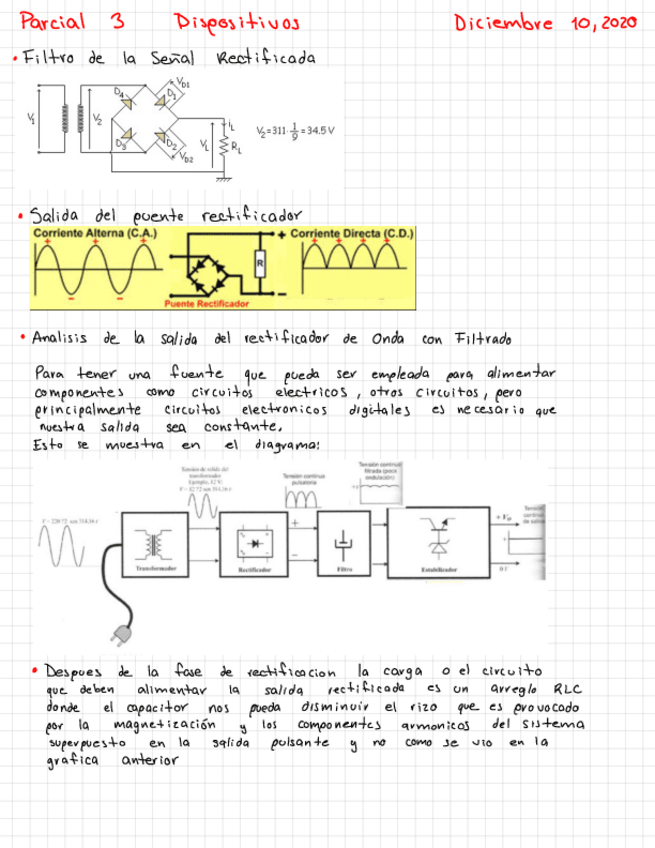 Parcial 3 Dispositivos Diciembre 10, 2020
• Filtro de la Señal Rectificada
D4 D1 VD1
V1 V2 D3 D2 VD2 VL iL RL
V2=311·1/9=34.5V
• Salida del puente rectificador
Corriente Alterna (C.A.) + Corriente Directa (C.D.)
R
Puente Rectificador
• Analisis de la salida del rectificador de Onda con Filtrado
Para tener una fuente que pueda ser empleada para alimentar
componentes como circuitos electricos, otros circuitos, pero
principalmente circuitos electronicos digitales es necesario que
nuestra salida sea constante.
Esto se muestra en el diagrama:
Tensión de salida del
transformador
Ejemplo, 12 V:
Tensión continua
pulsatoria
Tensión continua
filtrada (poca
ondulación)
+ Vo
Tensión
continua
de salida
Transformador
Rectificador
Filtro
Estabilizador
• Despues de la fase de rectificacion la carga o el circuito
que deben alimentar la salida rectificada es un arreglo RLC
donde el capacitor nos pueda disminuir el rizo que es provocado
por la magnetización y los componentes armonicos del sistema
superpuesto en la salida pulsante y no como se vio en la
grafica anterior